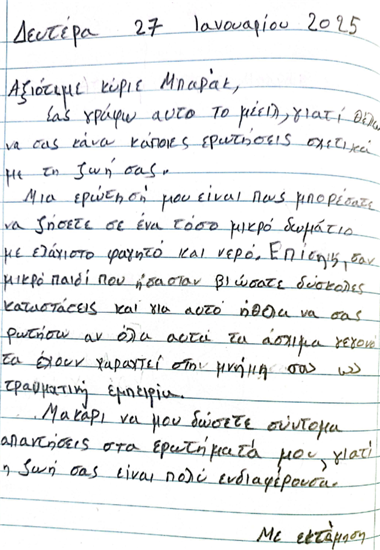 Δευτέρα 27 Ιανουαρίου 2025
Αξιότιμε κύριε Μπαράκ,
Σας γράφω αυτό το μέειλ, γιατί θέλω
να σας κάνω κάποιες ερωτήσεις σχετικά
με τη ζωή σας.
Μια ερώτησή μου είναι πως μπορέσατε
να ζήσετε σε ένα τόσο μικρό δωμάτιο
με ελάχιστο φαγητό και νερό. Επίσης, σαν
μικρό παιδί που ήσασταν βιώσατε δύσκολες
καταστάσεις και για αυτό ήθελα να σας
ρωτήσω αν όλα αυτά τα άσχημα γεγονό
τα έχουν χαραχτεί στην μνήμη σας ως
τραυματική εμπειρία.
Μακάρι να μου δώσετε σύντομα
απαντήσεις στα ερωτήματά μου, γιατί
η ζωή σας είναι πολύ ενδιαφέρουσα.
Με εκτίμηση